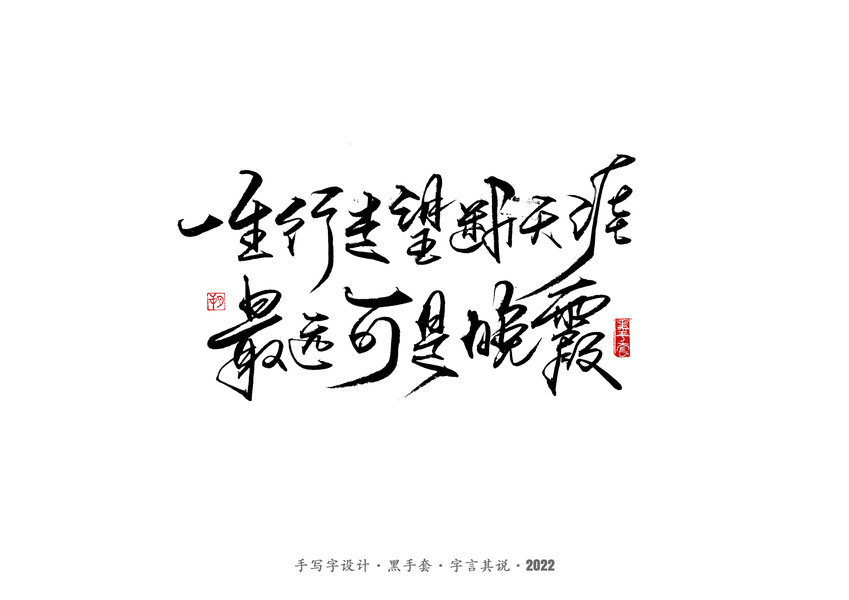 唯行走望断天涯
最远可是晚霞
手写字设计·黑手套·字言其说·2022